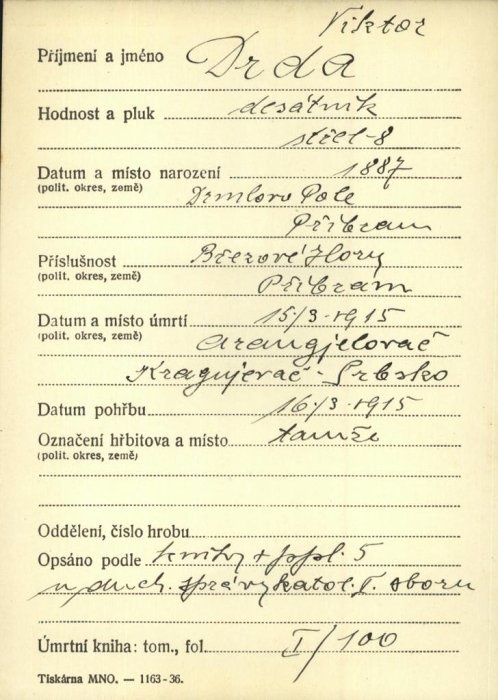 Viktor
Příjmení a jméno Drda
Hodnost a pluk desátník
střel-8
Datum a místo narození 1887
(polit. okres, země)
Drmlovo Pole
Příbram
Příslušnost Březové Hory
(polit. okres, země)
Příbram
Datum a místo úmrtí 15/3-1915
(polit. okres, země)
Arangjelovač
Kragujevač-Srbsko
Datum pohřbu 16/3-1915
Označení hřbitova a místo tamže
(polit. okres, země)
Oddělení, číslo hrobu
Opsáno podle knihy + ppl. 5
u duch. správy katol. I. sboru
Úmrtní kniha: tom., fol. I/100
Tiskárna MNO. — 1163-36.